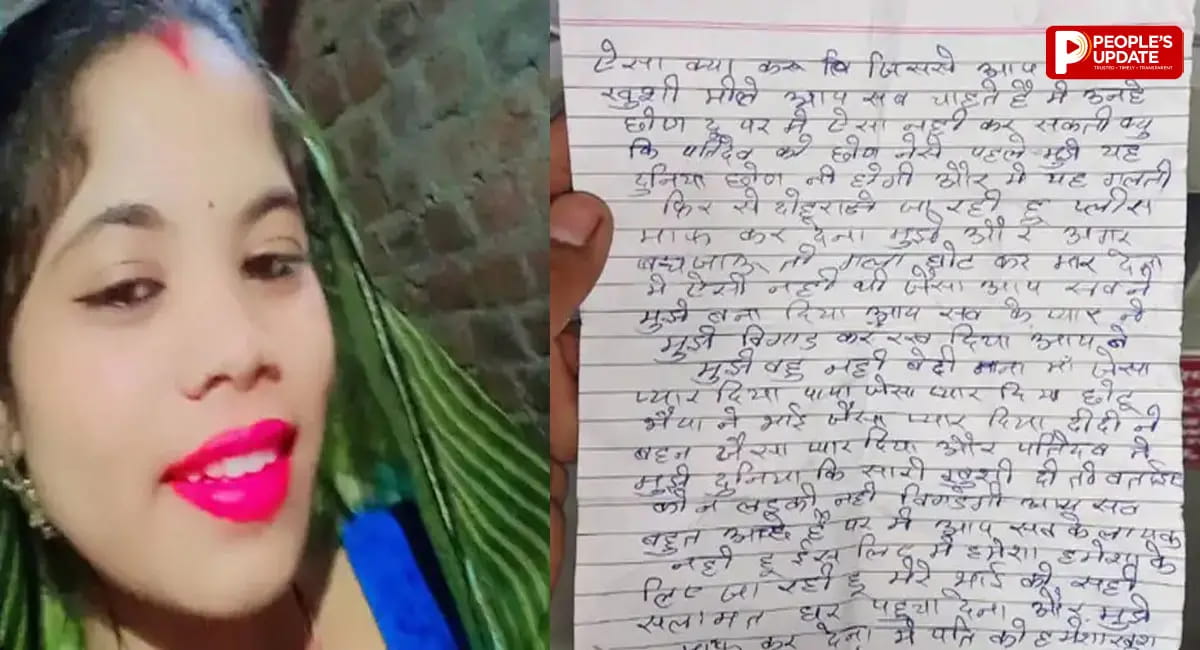 PEOPLE'S
UPDATE
TRUSTED • TIMELY • TRANSPARENT
ऐसा क्या करू कि जिससे आप
खुशी मीले आप सब चाहते है मे उनहे
छोण दू पर मे ऐसा नही कर सकती क्यु
कि पतिदेव को छोण नेसे पहले मुझे यह
दुनिया छोण नी होगी और मे यह गलती
फिर से दोहराने जा रही हू प्लीस
माफ कर देना मुझे और अगर
बच्च जाऊ तो गला घोट कर मार देना
मे ऐसी नही थी जैसा आप सब ने
मुझे बना दिया आप सब के प्यार ने
मुझे बिगाड कर रख दिया आप ने
मुझे बहु नही बेटी माना माँ जैसा
प्यार दिया पापा जैसा प्यार दिया छोटू
भैया ने भाई जैसा प्यार दिया दीदी ने
बहन जैसा प्यार दिया और पतिदेव ने
मुझे दुनिया कि सारी खुशी दी तो बताईए
कोन लडकी नही बिगडेगी आप सब
बहुत अच्छे है पर मे आप सब के लायक
नही हू इस लिए मे हमेशा हमेशा के
लिए जा रही हू मेरे भाई को सही
सलामत घर पहुचा देना और मुझे
माफ कर देना मे पति को हमेशा खुश